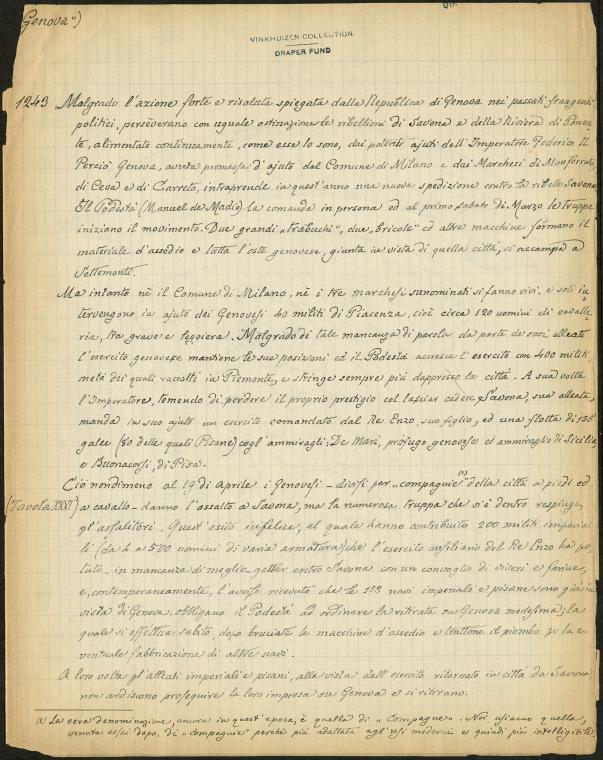 Genova")
VINKHUIZEN COLLECTION
DRAPER FUND
1243 Malgrado l'azione forte e risoluta spiegata dalla Republica di Genova nei passati frangenti
politici, perseverano con uguale ostinazione le ribellioni di Savona e della Riviera di Ponen-
te, alimentate continuamente, come esse lo sono, dai potenti ajuti dell'Imperatore Federico II.
Perciò Genova, avuta promessa d'ajuto dal Comune di Milano e dai Marchesi di Monferrato,
di Ceva e di Carreto, intraprende in quest'anno una nuova spedizione contro la ribelle Savona.
Il Podestà (Manuel de Madio) la comanda in persona ed al primo sabato di Marzo le truppe
iniziano il movimento. Due grandi „trabuchi", due „bricole" ed altre macchine formano il
materiale d'assedio e tutta l'oste genovese, giunta in vista di quella città, si accampa a
Settemonti.
Ma intanto nè il Comune di Milano, nè i tre marchesi sunominati si fanno vivi, e soli in-
tervengono in ajuto dei Genovesi 40 militi di Piacenza, cioè circa 120 uomini di cavalle-
ria, tra grave e leggiera. Malgrado di tale mancanza di parola da parte de suoi alleati
l'esercito genovese mantiene le sue posizioni ed il Podestà accresce l'esercito con 400 militi,
metà dei quali raccolti in Piemonte, e stringe sempre più dappresso la città. A sua volta
l'Imperatore, temendo di perdere il proprio prestigio col lasciar cadere Savona, sua alleata,
manda in suo ajuto un esercito comandato dal Re Enzo, suo figlio, ed una flotta di 135
galee (80 delle quali Pisane) cogl'ammiragli: De Mari, profugo genovese ed ammiraglio di Sicilia,
e Buonacorsi, di Pisa.
Ciò nondimeno al 19 di Aprile i Genovesi - divisi per „compagnie"(1) della città a piedi ed
(Tavola XXXI) a cavallo - danno l'assalto a Savona, ma la numerosa truppa che vi è dentro respinge
gl'assalitori. Quest'esito infelice, al quale hanno contribuito 200 militi imperia-
li (da 4 a 500 uomini di varia armatura) che l'esercito ausiliario del Re Enzo ha po-
tuto - in mancanza di meglio - gettar entro Savona con un convoglio di viveri e farine,
e, contemporaneamente, l'avviso ricevuto che le 153 navi imperiali e pisane sono già in
vista di Genova, obbligano il Podestà ad ordinare la ritirata su Genova medesima; la
quale si effettua subito, dopo bruciate le macchine d'assedio e trattone il piombo per la e-
ventuale fabbricazione di altre navi.
A loro volta gl'alleati imperiali e pisani, alla vista dell'esercito ritornato in città da Savona,
non ardiscono proseguire la loro impresa su Genova e si ritirano.
(1) La vera denominazione, ancora in quest'epoca, è quella di „Compagne". Noi usiamo quella,
venuta assai dopo, di „compagnie" perchè più adattata agl'usi moderni e quindi più intelligibile.